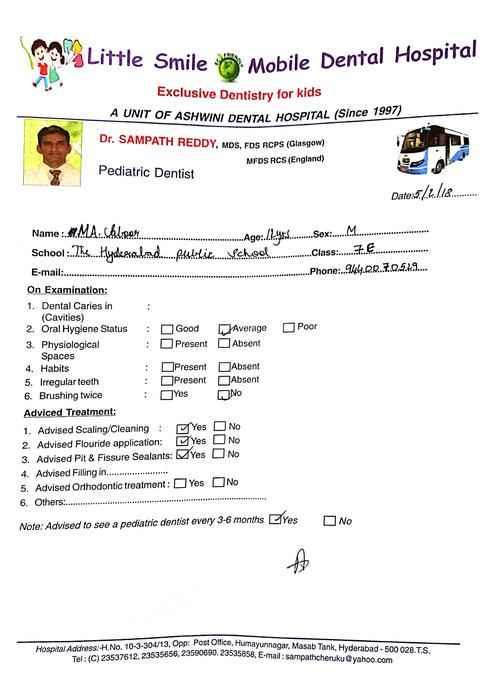 Little Smile Mobile Dental Hospital
Exclusive Dentistry for kids
A UNIT OF ASHWINI DENTAL HOSPITAL (Since 1997)
Dr. SAMPATH REDDY, MDS, FDS RCPS (Glasgow)
MFDS RCS (England)
Pediatric Dentist
Date:5/2/18
Name: MA. Age: 12yrs Sex: M
School: The Hyderabad public school Class: 7E
E-mail: Phone: 9440070529
On Examination:
1. Dental Caries in :
(Cavities)
2. Oral Hygiene Status : Good Average Poor
3. Physiological : Present Absent
Spaces
4. Habits : Present Absent
5. Irregular teeth : Present Absent
6. Brushing twice : Yes No
Adviced Treatment:
1. Advised Scaling/Cleaning : Yes No
2. Advised Flouride application: Yes No
3. Advised Pit & Fissure Sealants: Yes No
4. Advised Filling in.....................
5. Advised Orthodontic treatment : Yes No
6. Others:..............................................................
Note: Advised to see a pediatric dentist every 3-6 months Yes No
Hospital Address:-H.No. 10-3-304/13, Opp: Post Office, Humayunnagar, Masab Tank, Hyderabad - 500 028.T.S.
Tel : (C) 23537612, 23535656, 23590690. 23535858, E-mail : sampathcheruku@yahoo.com